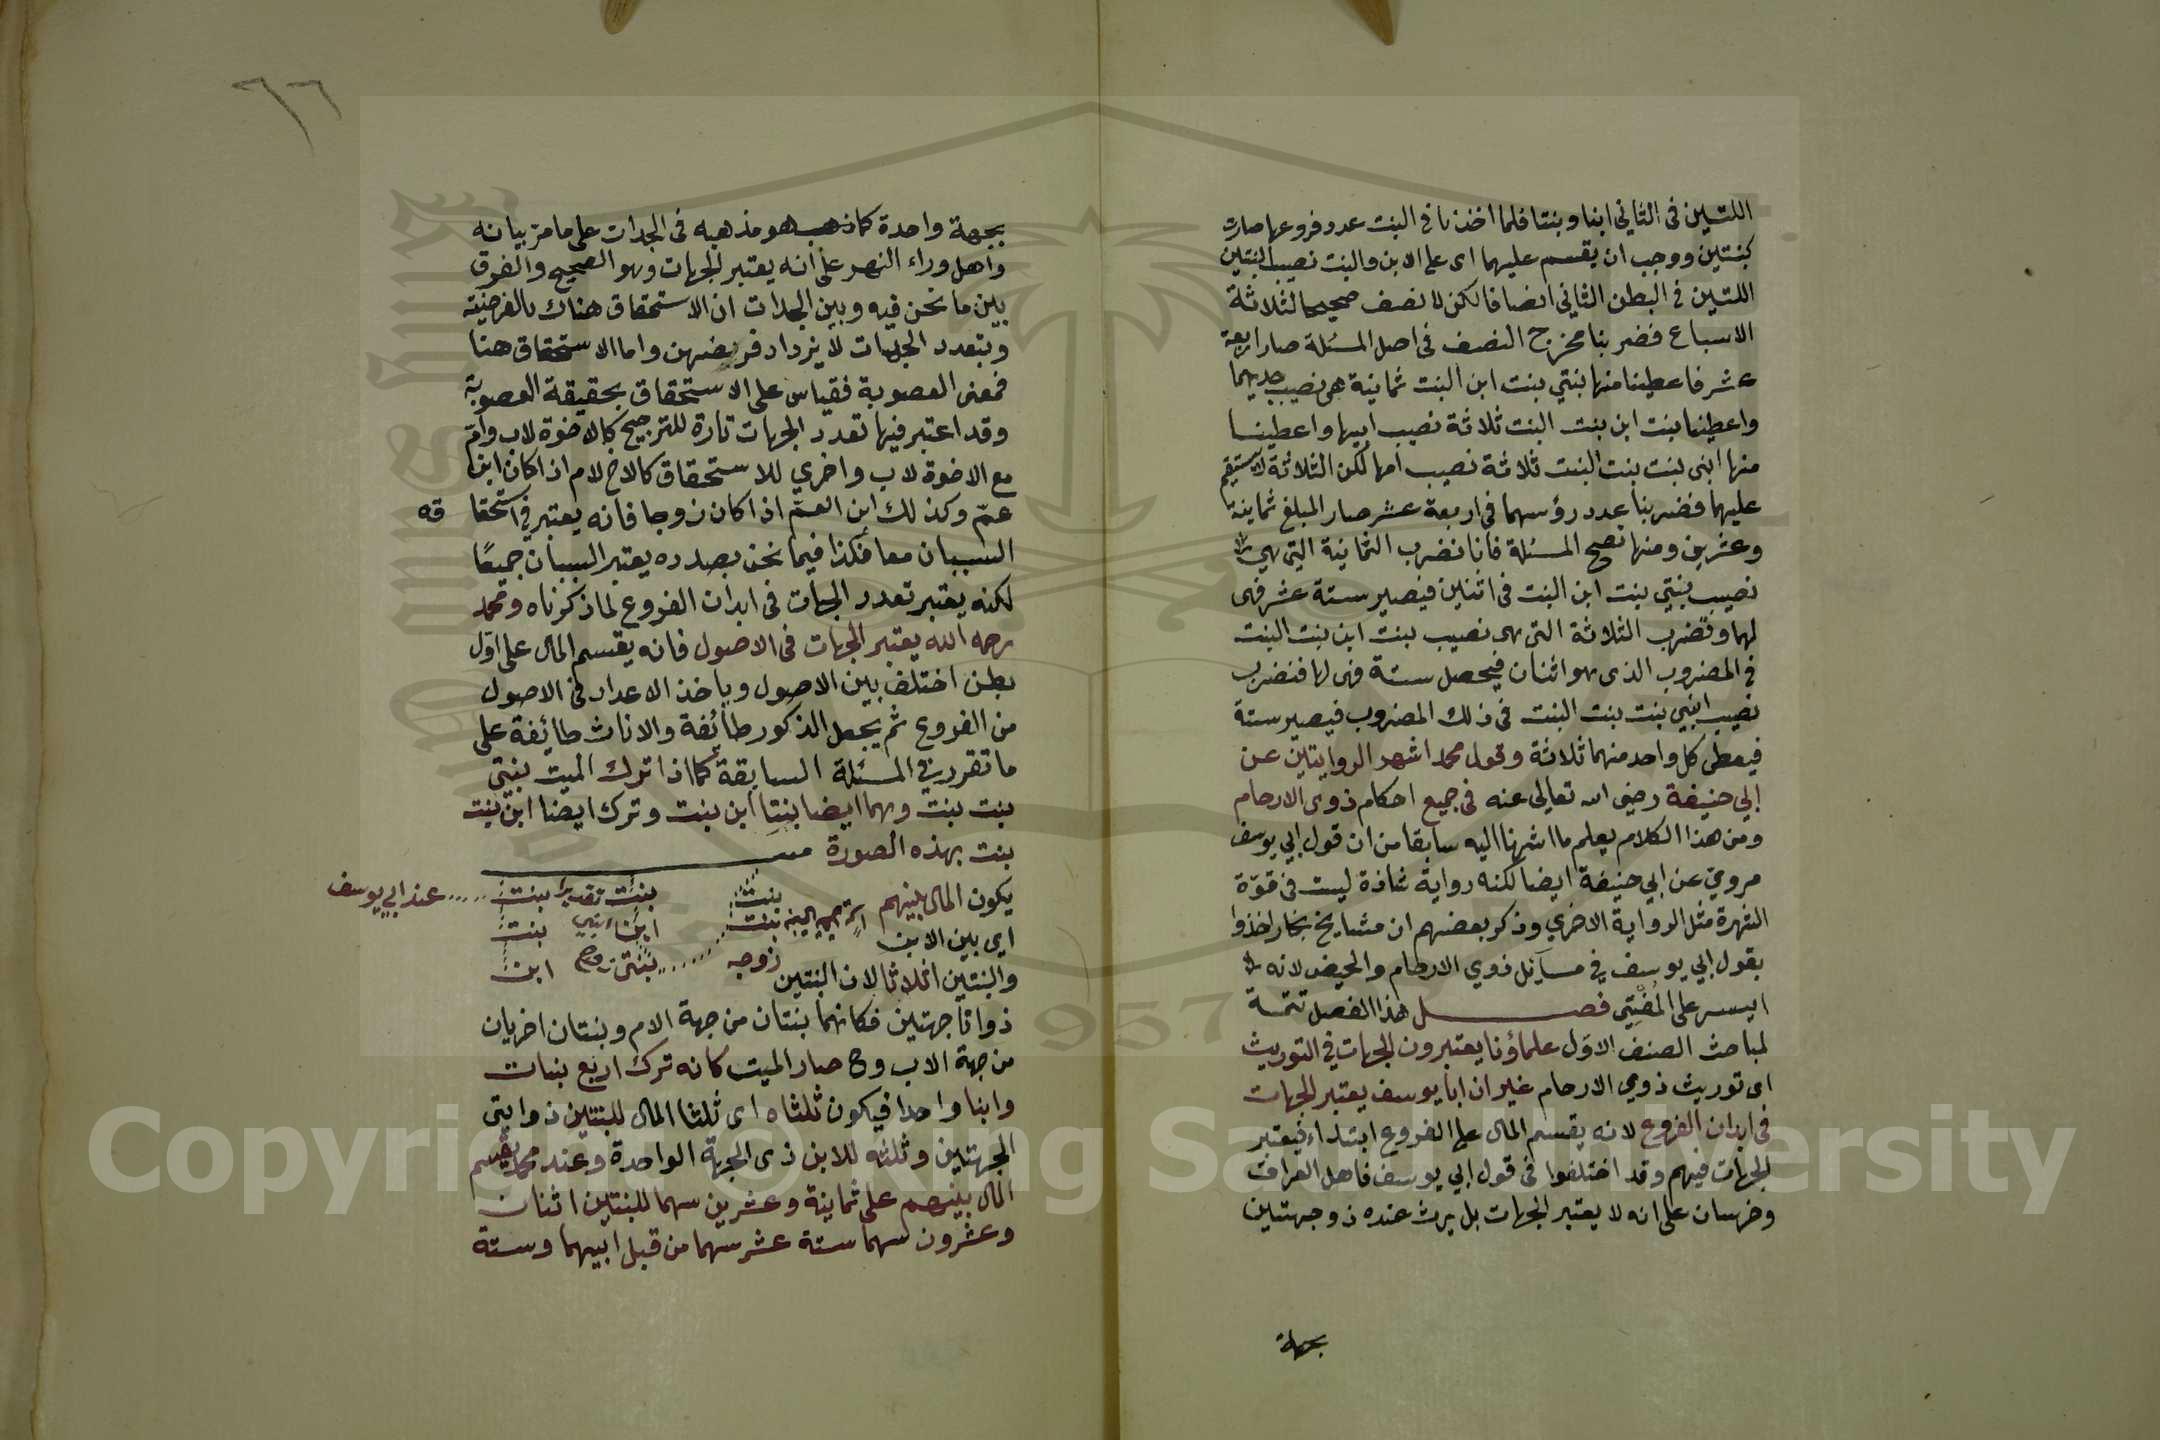 اللتين فى الثانى ابنا وبنتا فلما اخذنا فى البنت عدد فروعها صارت
كبنتين ووجب ان يقسم عليهما اى على الابن والبنت نصيب البنتين
اللتين فى البطن الثانى انصافا لكن لا نصف صحيحا لثلاثة
الاسباع فضربنا مخرج النصف فى اصل المسئلة صار اربعة
عشر فاعطينا منها بنتي بنت ابن البنت ثمانية هى نصيب جديهما
واعطينا بنت ابن بنت البنت ثلاثة نصيب ابيها واعطينا
منها ابنى بنت بنت البنت ثلاثة نصيب امها لكن الثلاثة لا يستقيم
عليهما فضربنا عدد رؤسهما فى اربعة عشر صار المبلغ ثمانية
وعشرين ومنها تصح المسئلة فانا نضرب الثمانية التى هى
نصيب بنتي بنت ابن البنت فى اثنين فيصير ستة عشر فهى
لهما ونضرب الثلاثة التى هى نصيب بنت ابن بنت البنت
فى المضروب الذى هو اثنان فيحصل ستة فهى لها فنضرب
نصيب ابني بنت بنت البنت فى ذلك المضروب فيصير ستة
فيعطى كل واحد منهما ثلاثة وقول محمد اشهر الروايتين عن
ابي حنيفة رضى الله تعالى عنه فى جميع احكام ذوى الارحام
ومن هذا الكلام يعلم ما اشرنا اليه سابقا من ان قول ابي يوسف
مروي عن ابي حنيفة ايضا لكنه رواية شاذة ليست فى قوة
الشهرة مثل الرواية الاخري وذكر بعضهم ان مشايخ بخارا اخذوا
بقول ابي يوسف في مسائل ذوي الارحام والحيض لانه
ايسر على المفتي فصل هذا الفصل تتمة
لمباحث الصنف الاول علماؤنا يعتبرون الجهات فى التوريث
اى توريث ذوي الارحام غير ان ابا يوسف يعتبر الجهات
فى ابدان الفروع لانه يقسم المال على الفروع ابتداء فيعتبر
الجهات فيهم وقد اختلفوا فى قول ابي يوسف فاهل العراق
وخرسان على انه لا يعتبر الجهات بل يرث عنده ذو جهتين
بجهة
٦٦
بجهة واحدة كما ذهب هو مذهبه فى الجدات على ما مر بيانه
واهل وراء النهر على انه يعتبر الجهات وهو الصحيح والفرق
بين ما نحن فيه وبين الجدات ان الاستحقاق هناك بالفرضية
وبتعدد الجهات لا يزداد فرضهن واما الاستحقاق هنا
فمعنى العصوبة فقياس على الاستحقاق بحقيقة العصوبة
وقد اعتبر فيها تعدد الجهات تارة للترجيح كالاخوة لاب وامّ
مع الاخوة لاب واخري للاستحقاق كالاخ لام اذا كان ابن
عمّ وكذلك ابن العمّ اذا كان زوجا فانه يعتبر في استحقا قه
السببان معا فكذا فيما نحن بصدده يعتبر السببان جميعًا
لكنه يعتبر تعدد الجهات فى ابدان الفروع لما ذكرناه ومحمد
رحمه الله يعتبر الجهات فى الاصول فانه يقسم المال على اول
بطن اختلف بين الاصول وياخذ الاعداد فى الاصول
من الفروع ثم يجعل الذكور طائفة والاناث طائيفة على
ما تقرر في المسئلة السابقة كما اذا ترك الميت بنتي
بنت بنت وهما ايضا بنتا ابن بنت وترك ايضا ابن بنت
بنت بهذه الصورة
بنت بنت تقديرا بنت عند ابي يوسف
يكون المال بينهم
بنت ابن بنت
اى بين الابن
زوجه بنتى ابن
والبنتين اثلاثا لان البنتين
ذواتا جهتين فكانهما بنتان من جهة الام وبنتان اخريان
من جهة الاب وح صار الميت كانه ترك اربع بنات
وابنا واحدا فيكون ثلثاه اى ثلثا المال للبنتين ذواتى
الجهتين وثلثه للابن ذى الجهة الواحدة وعند محمد يقسم
المال بينهم على ثمانية وعشرين سهما للبنتين اثنان
وعشرون سهما ستة عشر سهما من قبل ابيهما وستة
Copyright © King Saud University
1957